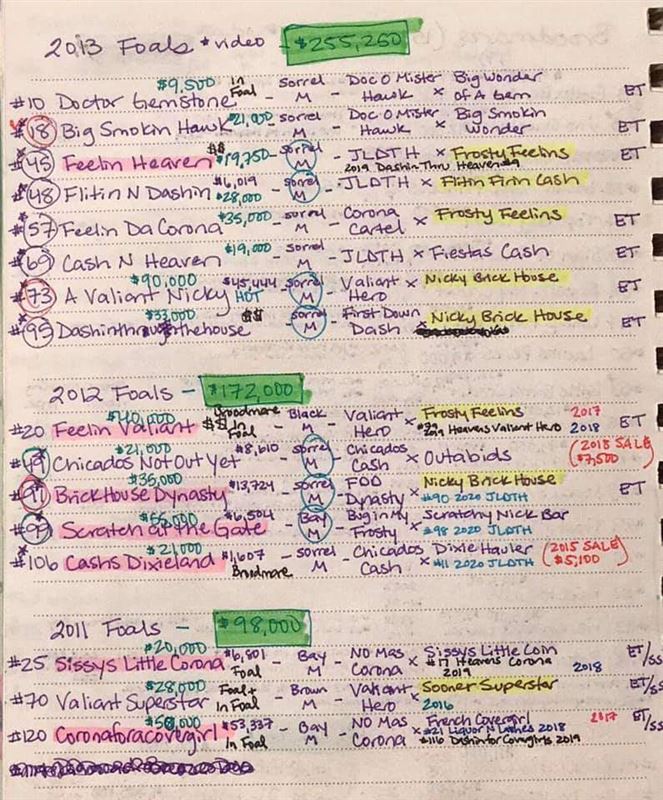 2013 Foals *video - $255,250
#10 Doctor Gemstone $9,500 In Foal - sorrel M - Doc O Mister Hawk × Big Wonder of A Gem ET
#18 Big Smokin Hawk $21,000 - sorrel M - Doc O Mister Hawk × Big Smokin Wonder ET
#45 Feelin Heaven $$ $19,750 - sorrel M - JLDTH × Frosty Feelins ET
2019 Dashin Thru Heaven #9
#48 Flitin N Dashin $6,019 $28,000 - sorrel M - JLDTH × Flitin Finn Cash
#57 Feelin Da Corona $35,000 - sorrel M - Corona Cartel × Frosty Feelins ET
#69 Cash N Heaven $19,000 - sorrel M - JLDTH × Fiestas Cash ET
#73 A Valiant Nicky $90,000 $45,444 HOT - sorrel M - Valiant Hero × Nicky Brick House ET
#95 Dashinthroughthehouse $33,000 $$ - sorrel M - First Down Dash × Nicky Brick House ET
2012 Foals - $172,000
#20 Feelin Valiant $40,000 $$ Broodmare In Foal - Black M - Valiant Hero × Frosty Feelins 2017 ET
2019 Heavens Valiant Hero 2018
#49 Chicados Not Out Yet $21,000 $8,610 - sorrel M - Chicados Cash × Outabids (2018 SALE $7,500)
#91 BrickHouse Dynasty $35,000 $13,724 - sorrel M - FDD Dynasty × Nicky Brick House ET
#90 2020 JLDTH
Scratch at the Gate $55,000 $6,504 - Bay M - Big in My Frosty × Scratchy Nick Bar
#98 2020 JLDTH
#106 Cashs Dixieland $21,000 $1,607 Broodmare - sorrel M - Chicados Cash × Dixie Hauler (2015 SALE $5,100)
#11 2020 JLDTH
2011 Foals - $98,000
#25 Sissys Little Corona $20,000 $6,801 Foal - Bay M - No Mas Corona × Sissys Little Coin ET/SS
#17 Heavens Corona 2019 2018
#70 Valiant Superstar $28,000 Foal + In Foal - Brown M - Valiant Hero × Sooner Superstar ET/SS
2016
#120 Coronaforacovergirl $50,000 $53,337 In Foal - Bay M - No Mas Corona × French Covergirl 2017 ET/SS
#21 Liquor N Lashes 2018
#116 Dashinforcovergirls 2019